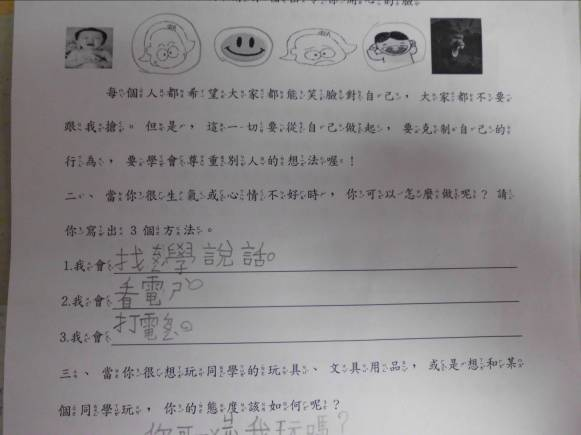 心的臉。
每個人都希望大家都能笑臉對自己，大家都不要
跟我搶。但是，這一切要從自己做起，要克制自己的
行為，要學會尊重別人的想法喔！
二、當你很生氣或心情不好時，你可以怎麼做呢？請
你寫出3個方法。
1.我會找學說話。
2.我會看電ㄕ。
3.我會打電。
三、當你很想玩同學的玩具、文具用品，或是想和某
個同學玩，你的態度該如何呢？
你可我玩嗎？